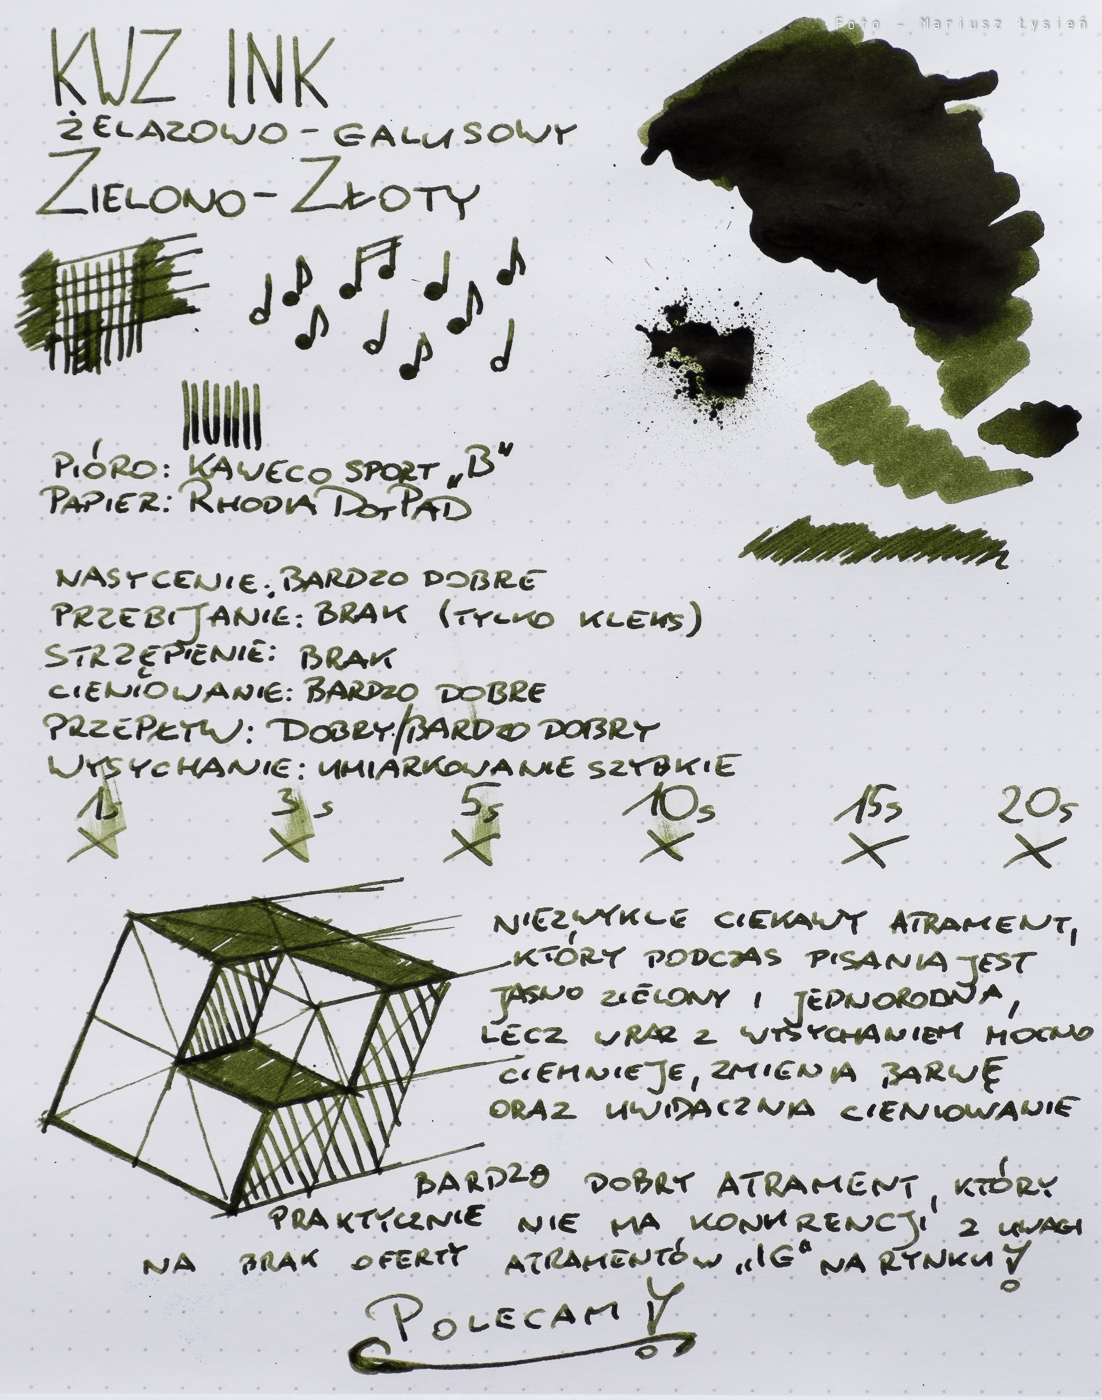 Foto - Mariusz Łysień
KWZ INK
ŻELAZOWO - GALUSOWY
ZIELONO - ZŁOTY
PIÓRO: KAWECO SPORT „B"
PAPIER: RHODIA DOTPAD
NASYCENIE: BARDZO DOBRE
PRZEBIJANIE: BRAK (TYLKO KLEKS)
STRZĘPIENIE: BRAK
CIENIOWANIE: BARDZO DOBRE
PRZEPŁYW: DOBRY/BARDZO DOBRY
WYSYCHANIE: UMIARKOWANIE SZYBKIE
1s 3s 5s 10s 15s 20s
NIEZWYKLE CIEKAWY ATRAMENT,
KTÓRY PODCZAS PISANIA JEST
JASNO ZIELONY I JEDNORODNA,
LECZ WRAZ Z WYSYCHANIEM MOCNO
CIEMNIEJE, ZMIENIA BARWĘ
ORAZ UWIDACZNIA CIENIOWANIE
BARDZO DOBRY ATRAMENT, KTÓRY
PRAKTYCZNIE NIE MA KONKRENCJI Z UWAGI
NA BRAK OFERTY ATRAMENTÓW „IG" NA RYNKU!
POLECAM!